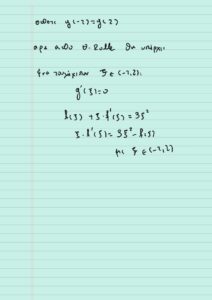 οπότε g(-2)=g(2)
αρα από Θ. Rolle θα υπάρχει
ένα τουλάχιστον ξ ∈ (-2,2):
g'(ξ)=0
f(ξ) + ξ·f'(ξ) = 3ξ²
ξ·f'(ξ) = 3ξ² - f(ξ)
με ξ ∈ (-2,2)